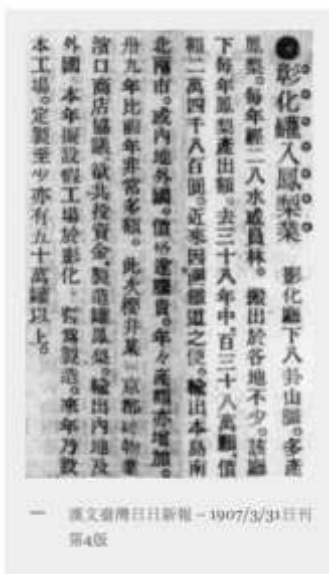 ●彰化罐入鳳梨業 彰化廳下八卦山脈。多產
鳳梨。每年經二八水或員林。搬出於各地不少。該廳
下每年鳳梨產出額。去三十八年中。百三十八萬顆。價
額二萬四千八百圓。近來因圖鐵道之便。輸出本島南
北兩市。或內地外國。價格騰貴。年々產額亦增加。
卅九年比前年非常多額。此次櫻井某 京都 物業
濱口商店協議。欲共投資金。製造罐鳳梨。輸出內地及
外國。本年擬設假工場於彰化。為製造。來年乃設
本工場。定製至少亦有五十萬罐以上。
— 漢文臺灣日日新報 – 1907/3/31日刊
第4版